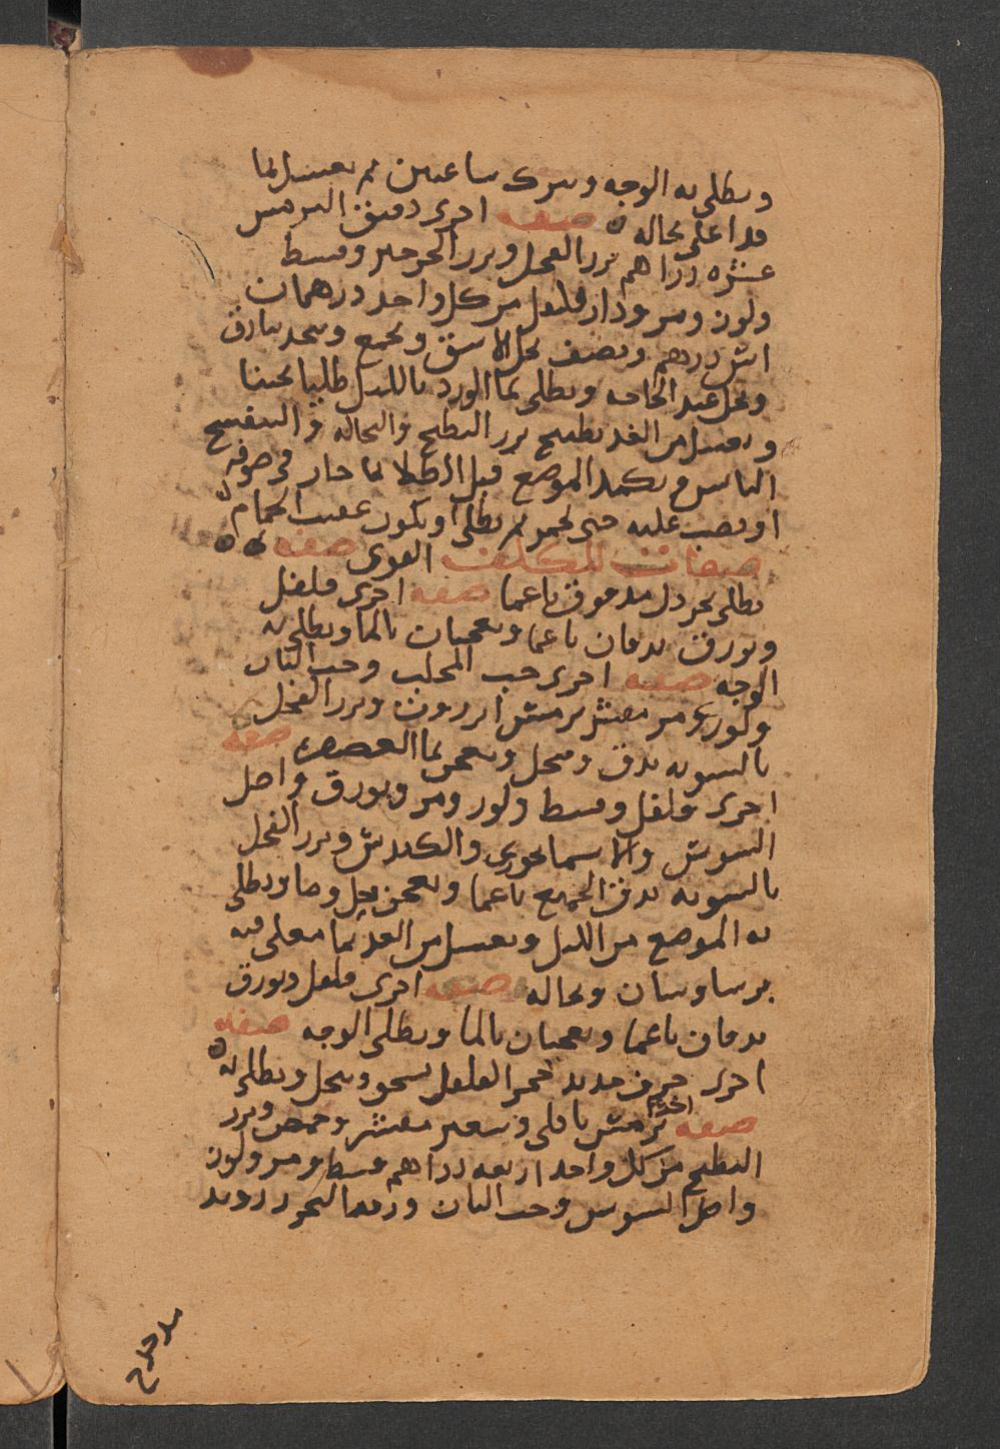 ويطلى به الوجه ويترك ساعتين ثم يغسل بما
قد اغلي بخاله ه صفه اخرى دقيق الترمس
عشره دراهم بزر الفجل وبزر الجرجير وقسط
ولوز ومر ودار فلفل من كل واحد درهمان
اشق درهم ونصف يحل الاشق ويجمع ويتخذ بنادق
وتحل عند الحاجه ويطلى بما الورد بالليل طليا ثخينا
ويغسل من الغد بطبيخ بزر البطيخ والنخاله والبنفسج
اليابس ويكمد الموضع قبل الطلا بما حار في صوفه
او يصب عليه حتى يحمر ثم يطلى او يكون عقيب الحمام
صفات للكلف القوى صفه
يطلى بخردل مدقوق ناعما صفه اخرى فلفل
وبورق يدقان ناعما ويعجنان بالما ويطلى به
الوجه صفه اخرى حب المحلب وحب البان
ولوز مر مقشر ترمس انزروت وبزر الفجل
بالسويه يدق وينخل ويعجن بما العصفر صفه
اخرى فلفل وقسط ولوز ومر وبورق واصل
السوسن والاسمانجونى والكندش وبزر الفجل
بالسويه يدق الجميع ناعما ويعجن بخل وما ويطلى
به الموضع من الليل ويغسل من الغد بما مغلى فيه
برساوسان ونخاله صفه اخرى فلفل وبورق
يدقان ناعما ويعجنان بالما ويطلى الوجه صفه
اخرى خزف جديد حجر الفلفل يسحق وينخل ويطلى به
صفه اخرى ترمس باقلى وشعير مقشر وحمص وبزر
البطيخ من كل واحد اربعه دراهم قسط ومر ولوز
واصل السوسن وحب البان ورغما البحر زروند
مدحرج